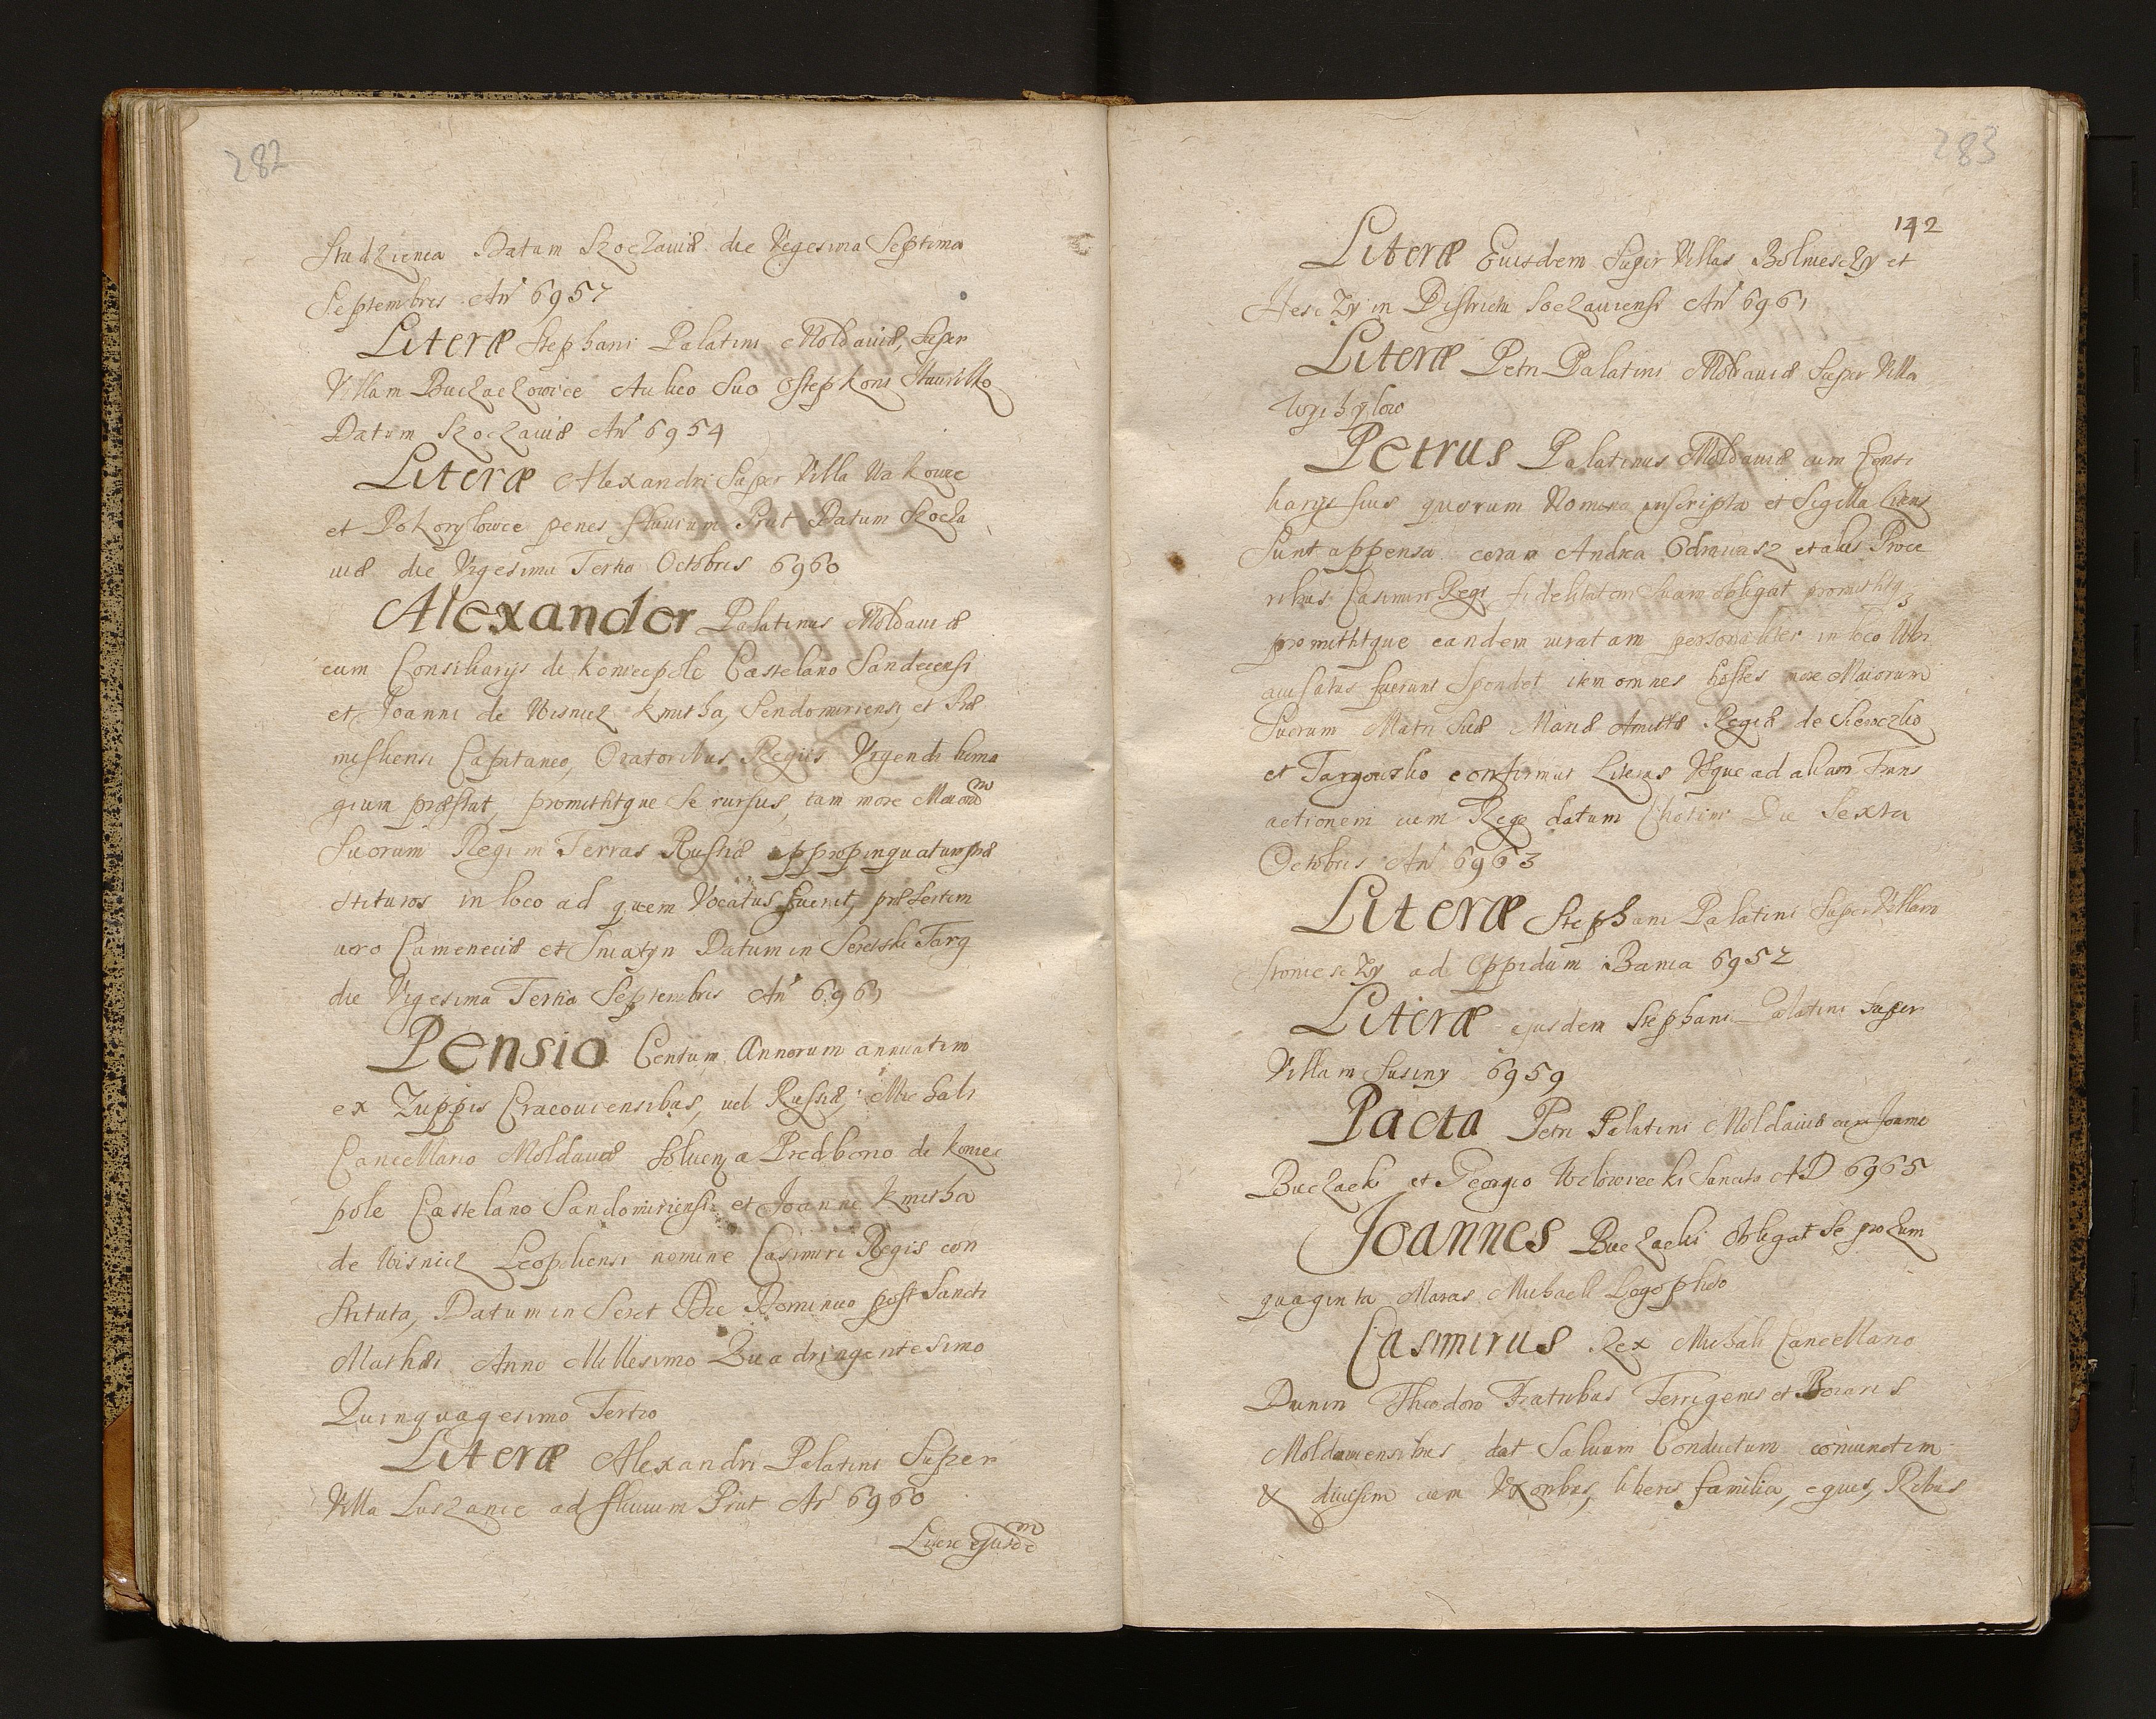 282
Studzienea Datum Szoczauiæ die Vigesima Septima
Septembris An 6957
Literæ Stephani Palatini Moldauiæ, Super
Villam Buczaczowice Aulico Suo Ostepkoni
Datum Szoczauiæ An 6954
Literæ Alexandri Super Villa Wakowce
et Pokorzylowce penes fluuium Prut Datum Szocza
uiæ die Vigesima Tertia Octobris 6960
Alexander Palatinus Moldauiæ
cum Consiliarijs de koniecpole Castelano Sandecensi
et Joanni de Wisnicz kmitha, Sendomiriensi, et Præ
misliensi Capitaneo, Oratoribus Regiis Vrgendi homa
gium præstat, promithitque Se rursus, tam more
Suorum Regi in Terras Russiæ appropinquatum præ
stituros in loco ad quem Vocatus fuerit, præsertim
uero Cameneciæ et Sniatyn Datum in Seretski Targ
die Vigesima Tertia Septembris An 6961
Pensio Centum Annorum annuatim
ex Zuppis Cracouiensibus, uel Russiæ, Michali
Cancellario Moldauiæ soluenda Predborio de koniec
pole Castelano Sandomiriensi et Joanne kmitha
de Wisnicz Leopoliensi nomine Casimiri Regis con
stituta, Datum in Seret Die Dominico post Sancti
Mathæi Anno Millesimo Quadringentesimo
Quinquagesimo Tertio
Literæ Alexandri Palatini Super
Villa Luszanie ad fluuium Prut An 6960
Litere ejusdem
283
142
Literæ Euisdem Super Villas Bolmesczy et
Hesczy in Districtu Soczauiensi An 6961
Literæ Petri Palatini Moldauiæ Super Villa

Petrus Palatinus Moldauiæ cum Consi
liarijs suis quorum Nomina inscripta et Sigilla
Sunt appensa coram Andrea Odrowasz et aliis Proce
ribus Casimiri Regi fidelitatem Suam obligat promithitq3
promithitque eandem iuratam personaliter in loco Ubi
auisatus fuerunt Spondet item omnes hostes more Maiorum
Suorum Matri Suæ Mariæ Amittæ Regiæ de Sieroczko
et Targowisko confirmat Literas Vsque ad aliam Trans
actionem cum Rege datum Chotim Die Sexta
Octobris An 6963
Literæ Stephani Palatini Super Villam
stoniesczy ad Oppidum Bania 6952
Literæ ejusdem Stephani Palatini Super
Villam Susiny 6959
Pacta Petri Palatini Moldauiæ cum Joanne
Buczacki et Georgio Sancita AD 6965
Joannes Buczacki Obligat Se pro
quaginta Marcas Michaeli Logophieto
Casimirus Rex Michali Cancellario
Dunin Theodoro Fratribus Terrigenis et Boiaris
Moldauiensibus dat Saluum Conductum coniunctim
& diuisim cum Vxoribus, liberis familia, equis, Rebus